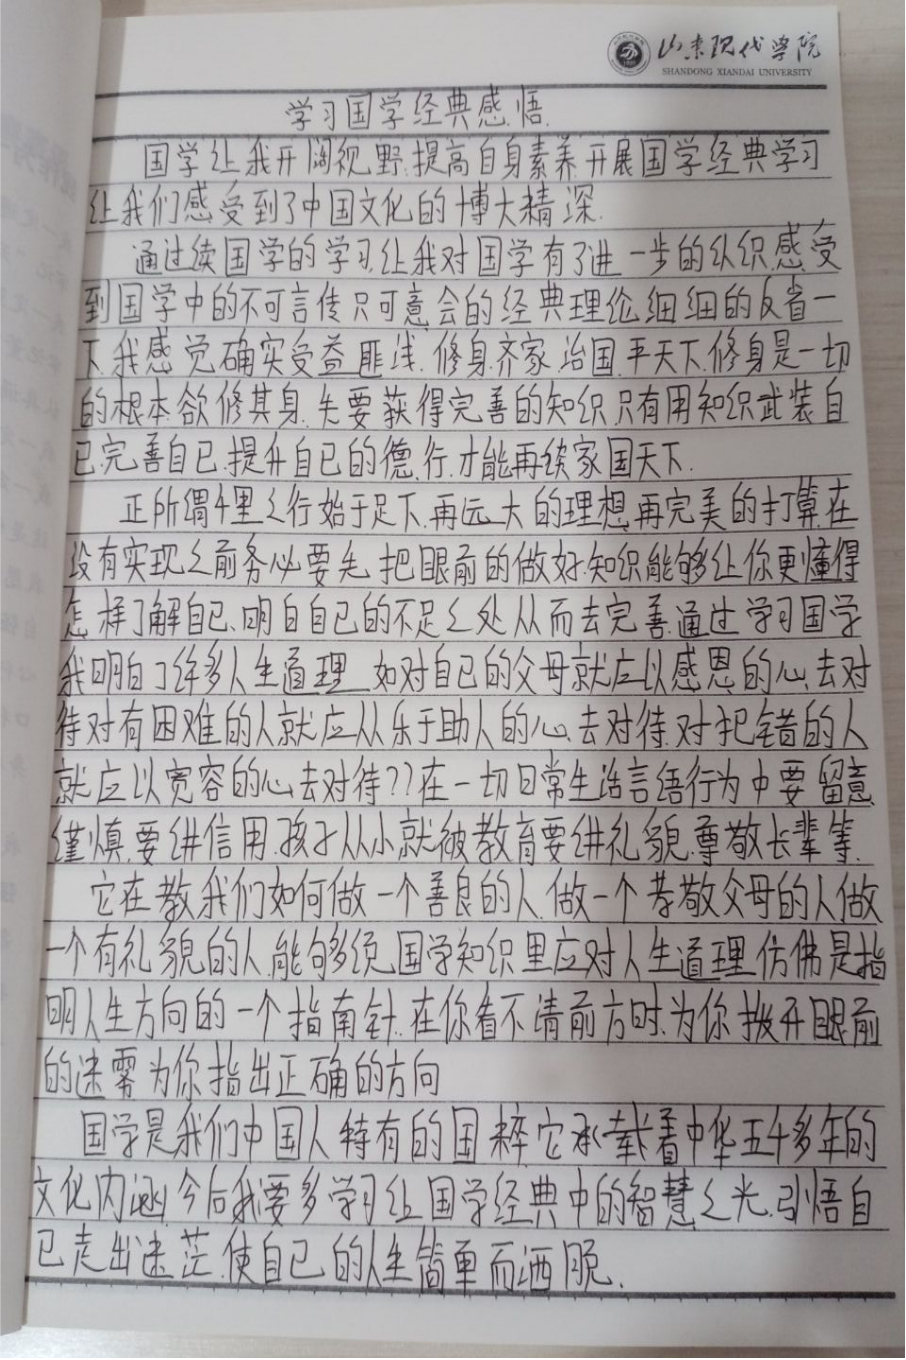 山东现代学院
SHANDONG XIANDAI UNIVERSITY
学习国学经典感悟.
国学让我开阔视野.提高自身素养.开展国学经典学习
让我们感受到了中国文化的博大精深.
通过续国学的学习,让我对国学有了进一步的认识,感受
到国学中的不可言传只可意会的经典理论细细的反省一
下.我感觉确实受益匪浅.修身.齐家.治国.平天下.修身是一切
的根本欲修其身.先要获得完善的知识.只有用知识武装自
己.完善自己.提升自己的德.行.才能再续家国天下.
正所谓千里之行始于足下.再远大的理想.再完美的打算.在
没有实现之前务必要先把眼前的做好.知识能够让你更懂得
怎样了解自己、明白自己的不足之处从而去完善.通过学习国学
我明白了许多人生道理 如对自己的父母就应以感恩的心.去对
待对有困难的人就应从乐于助人的心.去对待.对犯错的人
就应以宽容的心去对待??在一切日常生活言语行为中要留意
谨慎.要讲信用.孩子从小就被教育要讲礼貌.尊敬长辈等.
它在教我们如何做一个善良的人.做一个孝敬父母的人做
一个有礼貌的人.能够多说.国学知识里应对人生道理仿佛是指
明人生方向的一个指南针.在你看不清前方时.为你拨开眼前
的迷雾为你指出正确的方向
国学是我们中国人特有的国粹.它承载着中华五千多年的
文化内涵,今后我要多学习让国学经典中的智慧之光.引悟自
己走出迷茫.使自己的人生简单而洒脱.